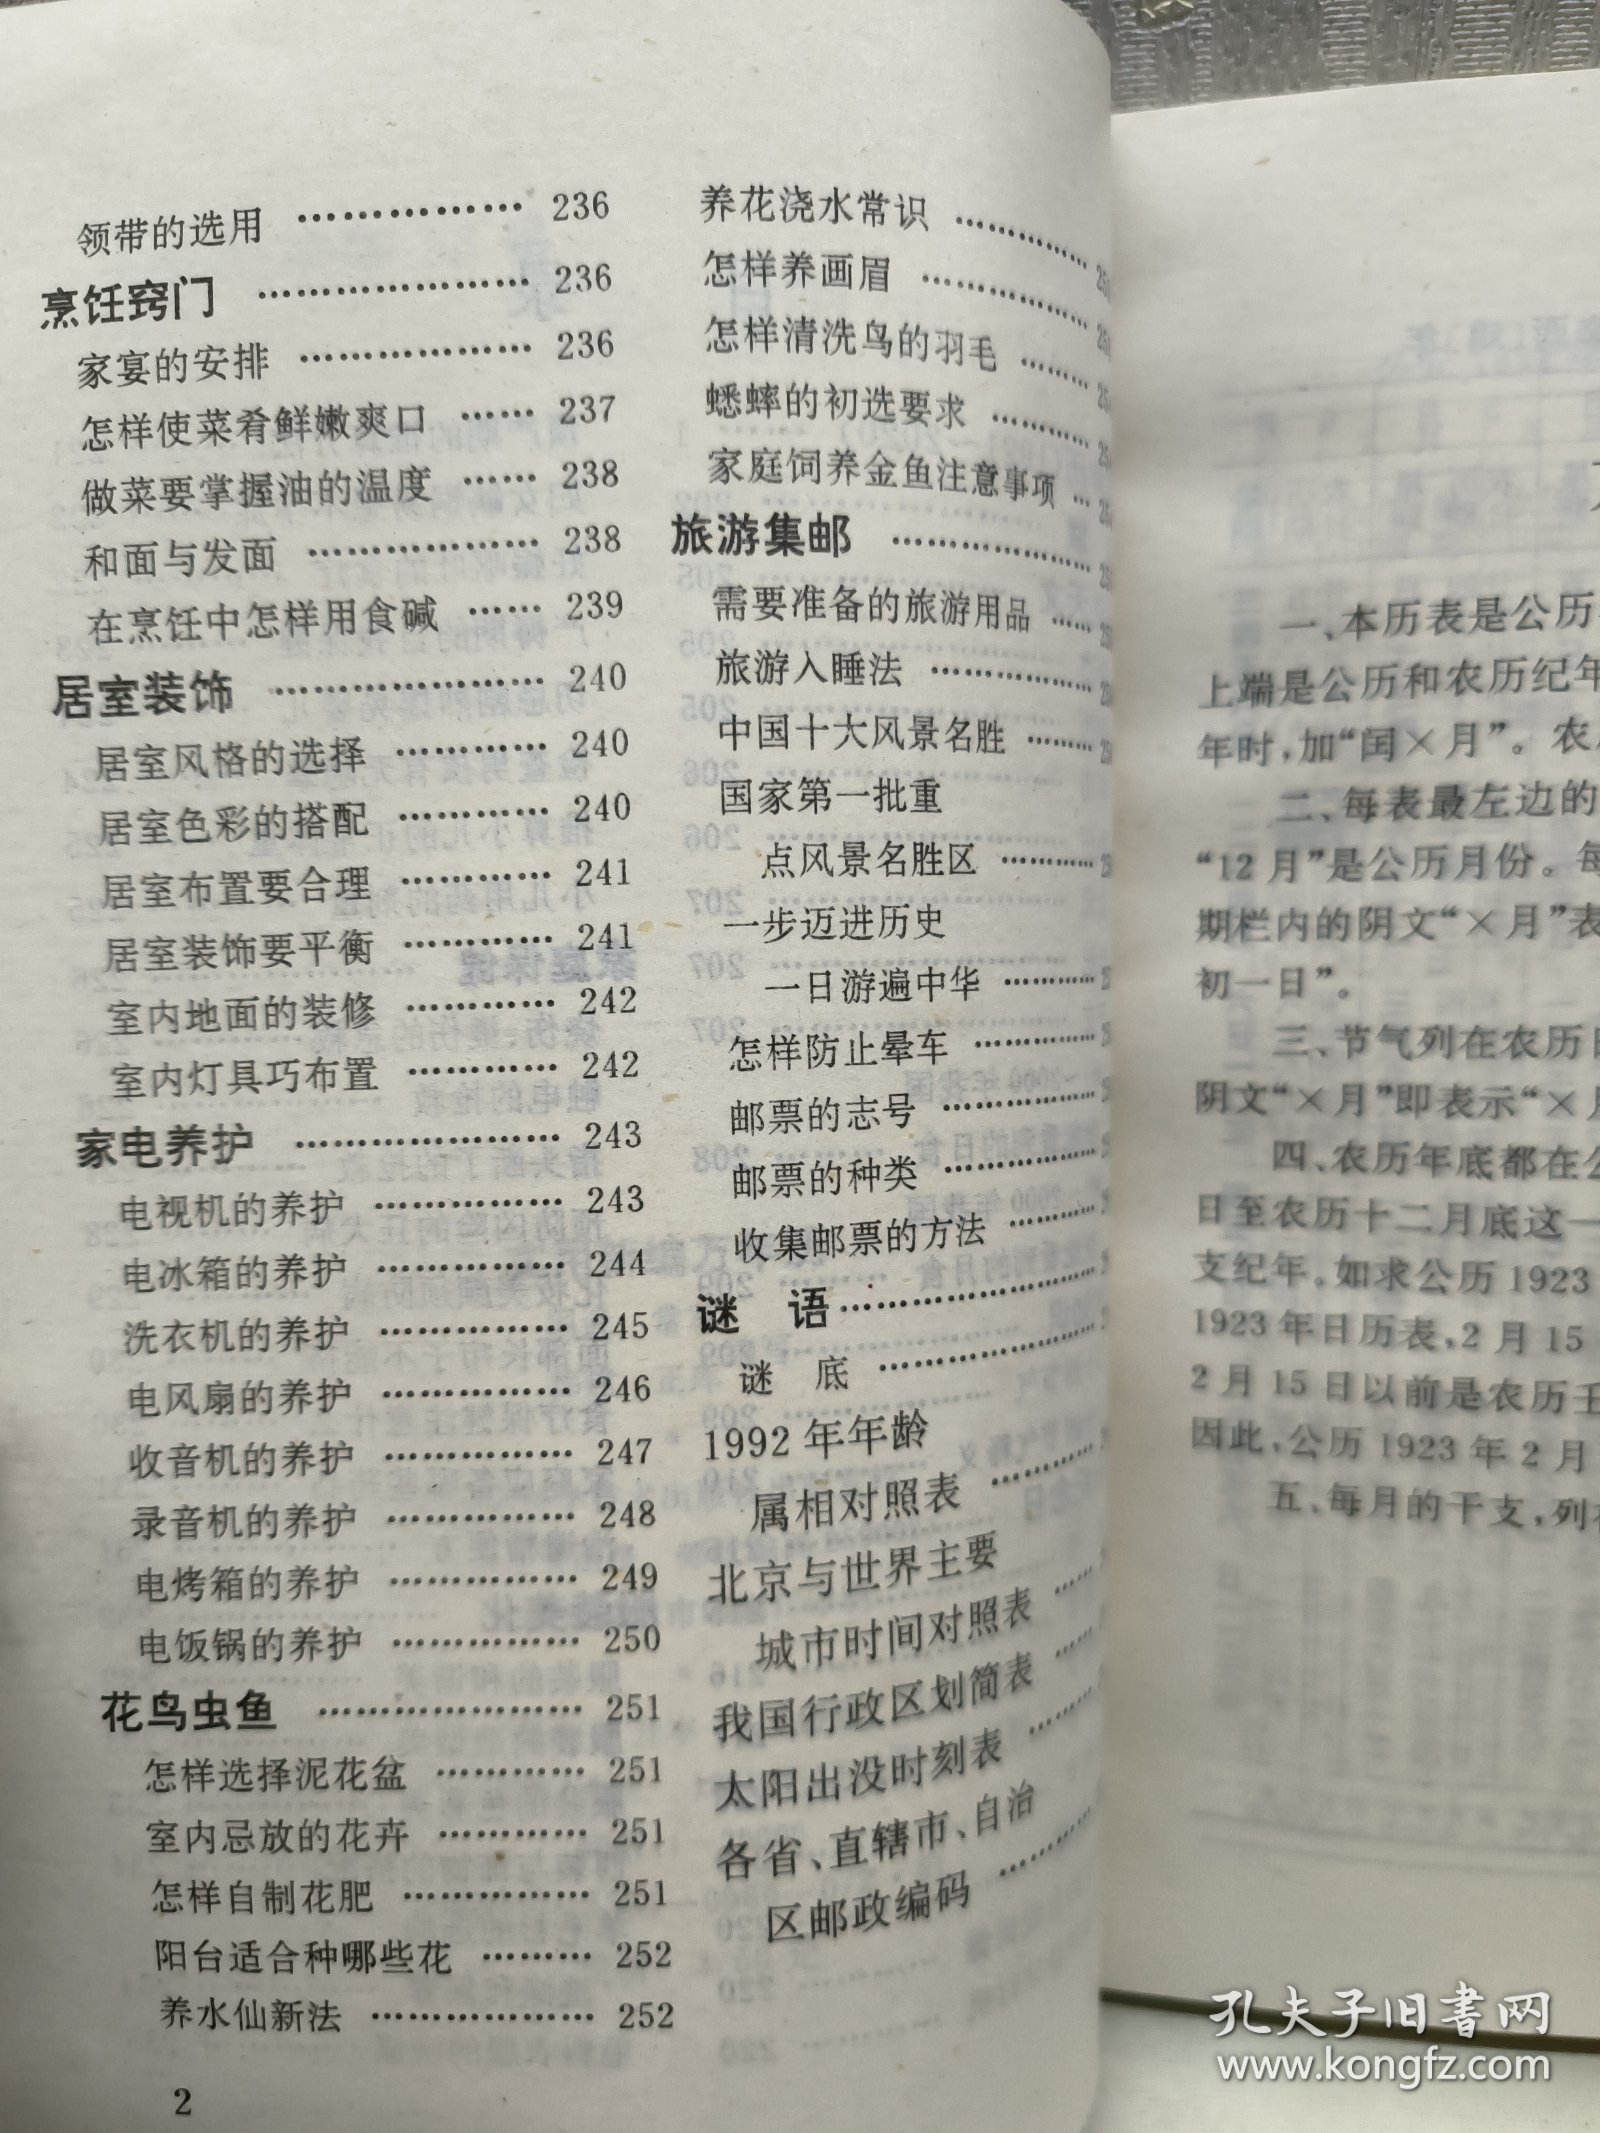 领带的选用 ……………… 236
烹饪窍门 ………………… 236
家宴的安排 ……………… 236
怎样使菜肴鲜嫩爽口 …… 237
做菜要掌握油的温度 …… 238
和面与发面 ……………… 238
在烹饪中怎样用食碱 …… 239
居室装饰 ………………… 240
居室风格的选择 ………… 240
居室色彩的搭配 ………… 240
居室布置要合理 ………… 241
居室装饰要平衡 ………… 241
室内地面的装修 ………… 242
室内灯具巧布置 ………… 242
家电养护 ………………… 243
电视机的养护 …………… 243
电冰箱的养护 …………… 244
洗衣机的养护 …………… 245
电风扇的养护 …………… 246
收音机的养护 …………… 247
录音机的养护 …………… 248
电烤箱的养护 …………… 249
电饭锅的养护 …………… 250
花鸟虫鱼 ………………… 251
怎样选择泥花盆 ………… 251
室内忌放的花卉 ………… 251
怎样自制花肥 …………… 251
阳台适合种哪些花 ……… 252
养水仙新法 ……………… 252
2
养花浇水常识 ……………
怎样养画眉 ………………
怎样清洗鸟的羽毛 ………
蟋蟀的初选要求 …………
家庭饲养金鱼注意事项 …
旅游集邮 …………………
需要准备的旅游用品 ……
旅游入睡法 ………………
中国十大风景名胜 ………
国家第一批重
点风景名胜区 …………
一步迈进历史
一日游遍中华 …………
怎样防止晕车 ……………
邮票的志号 ………………
邮票的种类 ………………
收集邮票的方法 …………
谜 语 …………………
谜 底 …………………
1992年年龄
属相对照表 ……………
北京与世界主要
城市时间对照表 ……
我国行政区划简表 ……
太阳出没时刻表 ………
各省、直辖市、自治
区邮政编码 …………
一、本历表是公历
上端是公历和农历纪年
年时,加“闰×月”。农
二、每表最左边的
“12月”是公历月份。每
期栏内的阴文“×月”表
初一日”。
三、节气列在农历
阴文“×月”即表示“×
四、农历年底都在
日至农历十二月底这一
支纪年。如求公历1923
1923年日历表,2月15
2月15日以前是农历壬
因此,公历1923年2月
五、每月的干支,列
孔夫子旧书网
www.kongfz.com